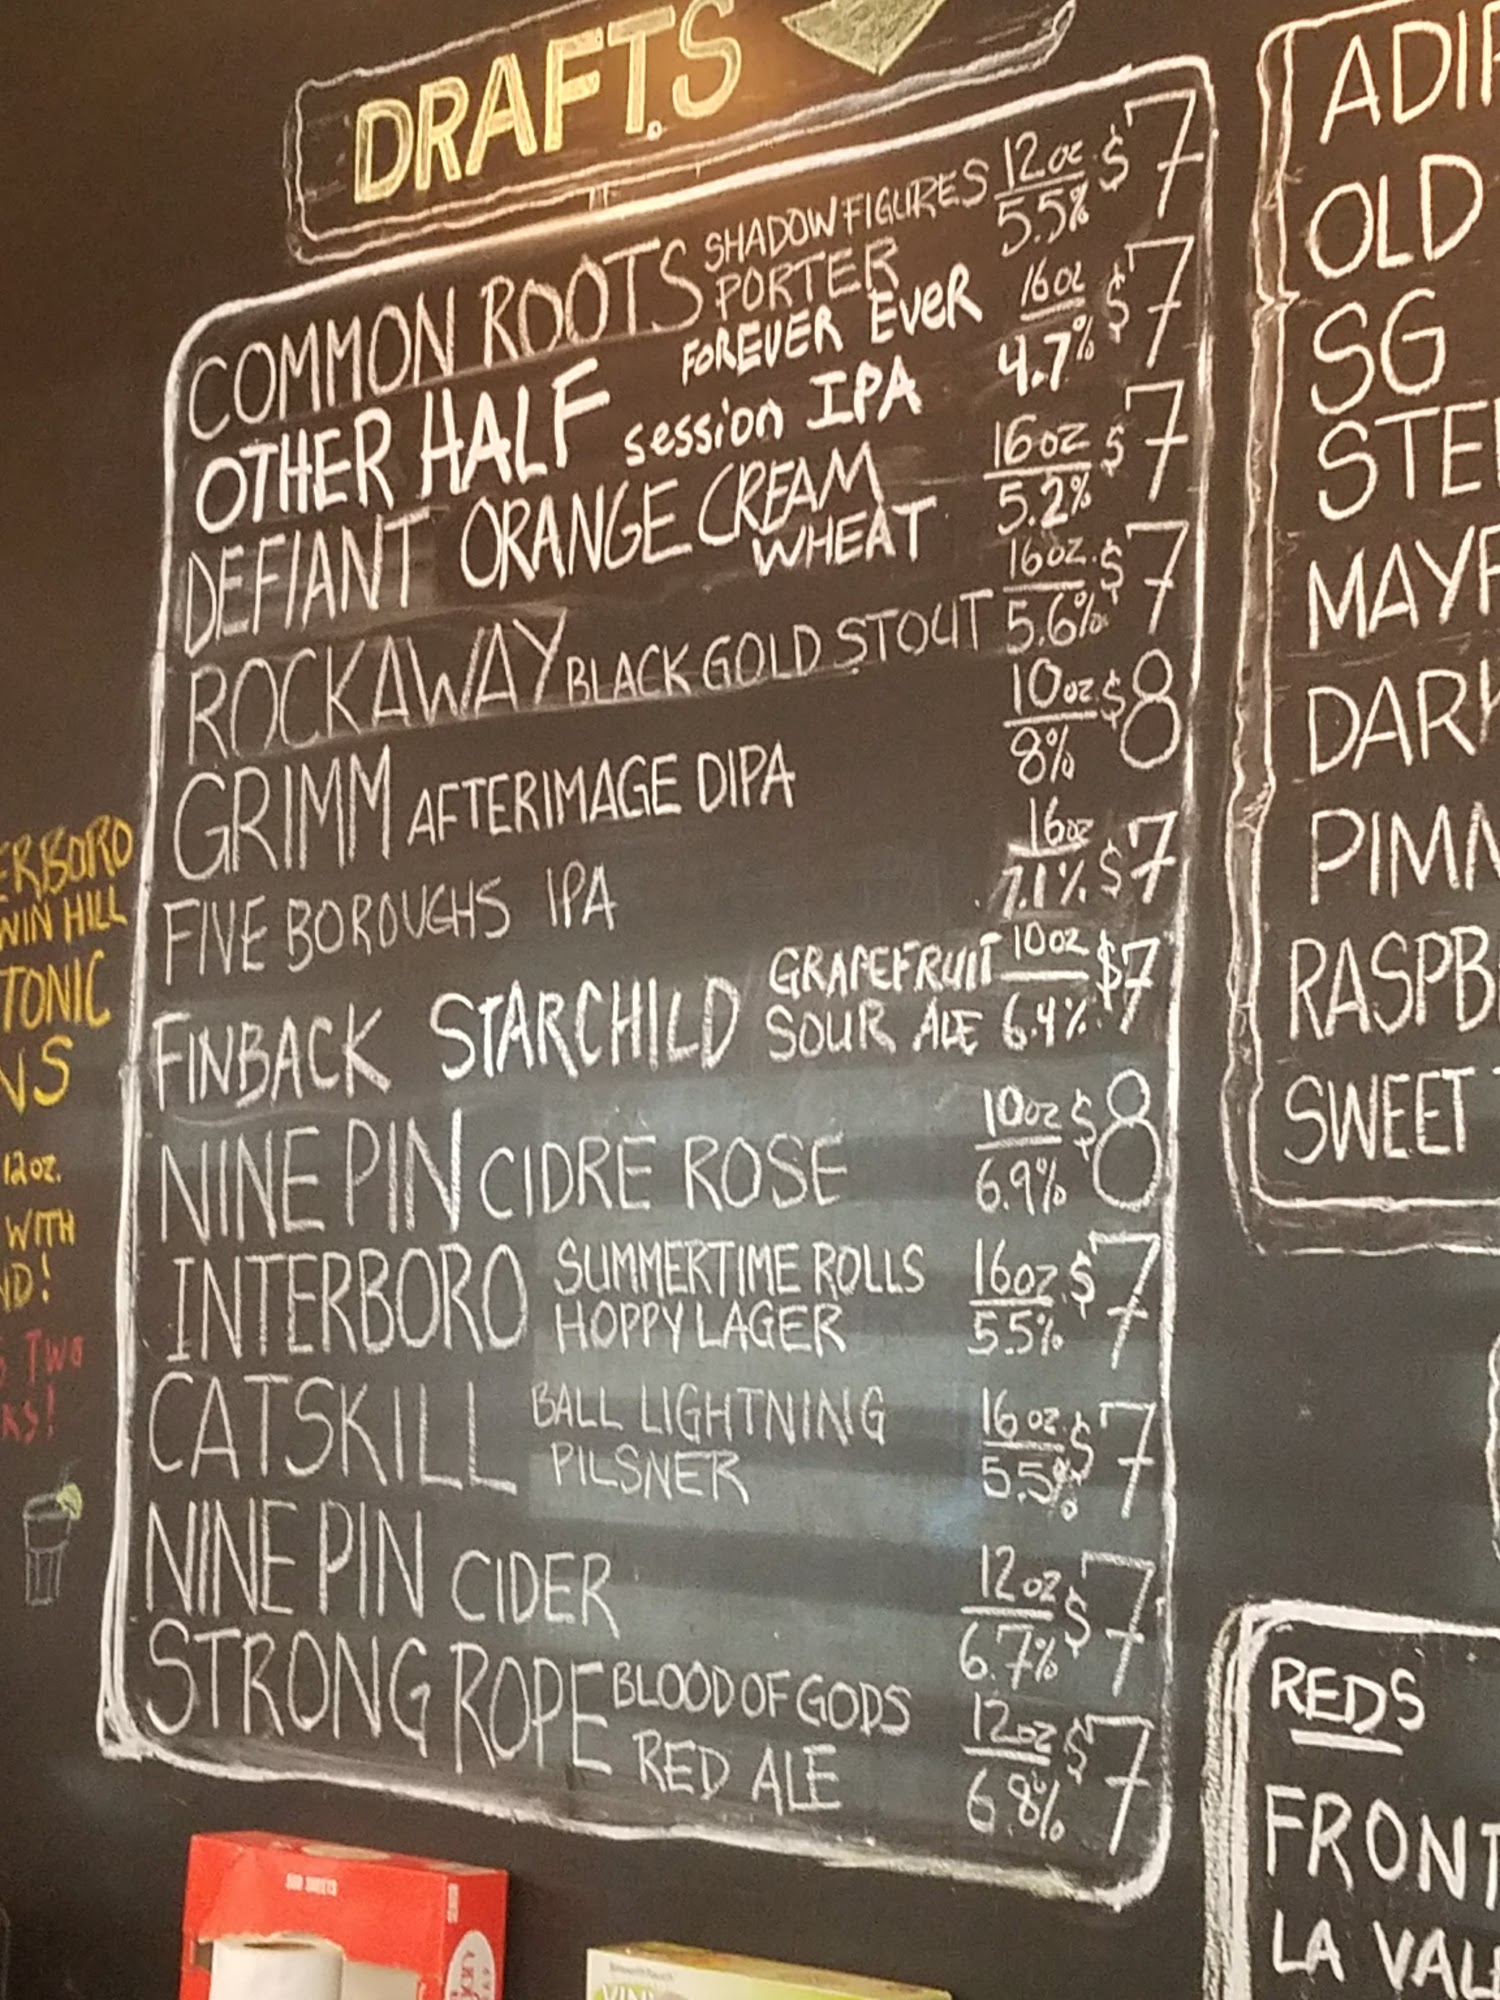 DRAFTS
COMMON ROOTS SHADOW FIGURES PORTER 12oz 5.5% $7
OTHER HALF FOREVER EVER session IPA 16oz 4.7% $7
DEFIANT ORANGE CREAM WHEAT 16oz 5.2% $7
ROCKAWAY BLACK GOLD STOUT 16oz 5.6% $7
GRIMM AFTERIMAGE DIPA 10oz 8% $8
FIVE BOROUGHS IPA 16oz 7.1% $7
FINBACK STARCHILD GRAPEFRUIT SOUR ALE 10oz 6.4% $7
NINE PIN CIDRE ROSE 10oz 6.9% $8
INTERBORO SUMMERTIME ROLLS HOPPY LAGER 16oz 5.5% $7
CATSKILL BALL LIGHTNING PILSNER 16oz 5.5% $7
NINE PIN CIDER 12oz 6.7% $7
STRONG ROPE BLOOD OF GODS RED ALE 12oz 6.8% $7
ERBORO
WIN HILL
TONIC
NS
12oz.
WITH
ND!
TWO
KS!
ADIR
OLD
SG
STE
MAYF
DARK
PIMM
RASPB
SWEET
REDS
FRONT
LA VAL
500 SHEETS
VINY